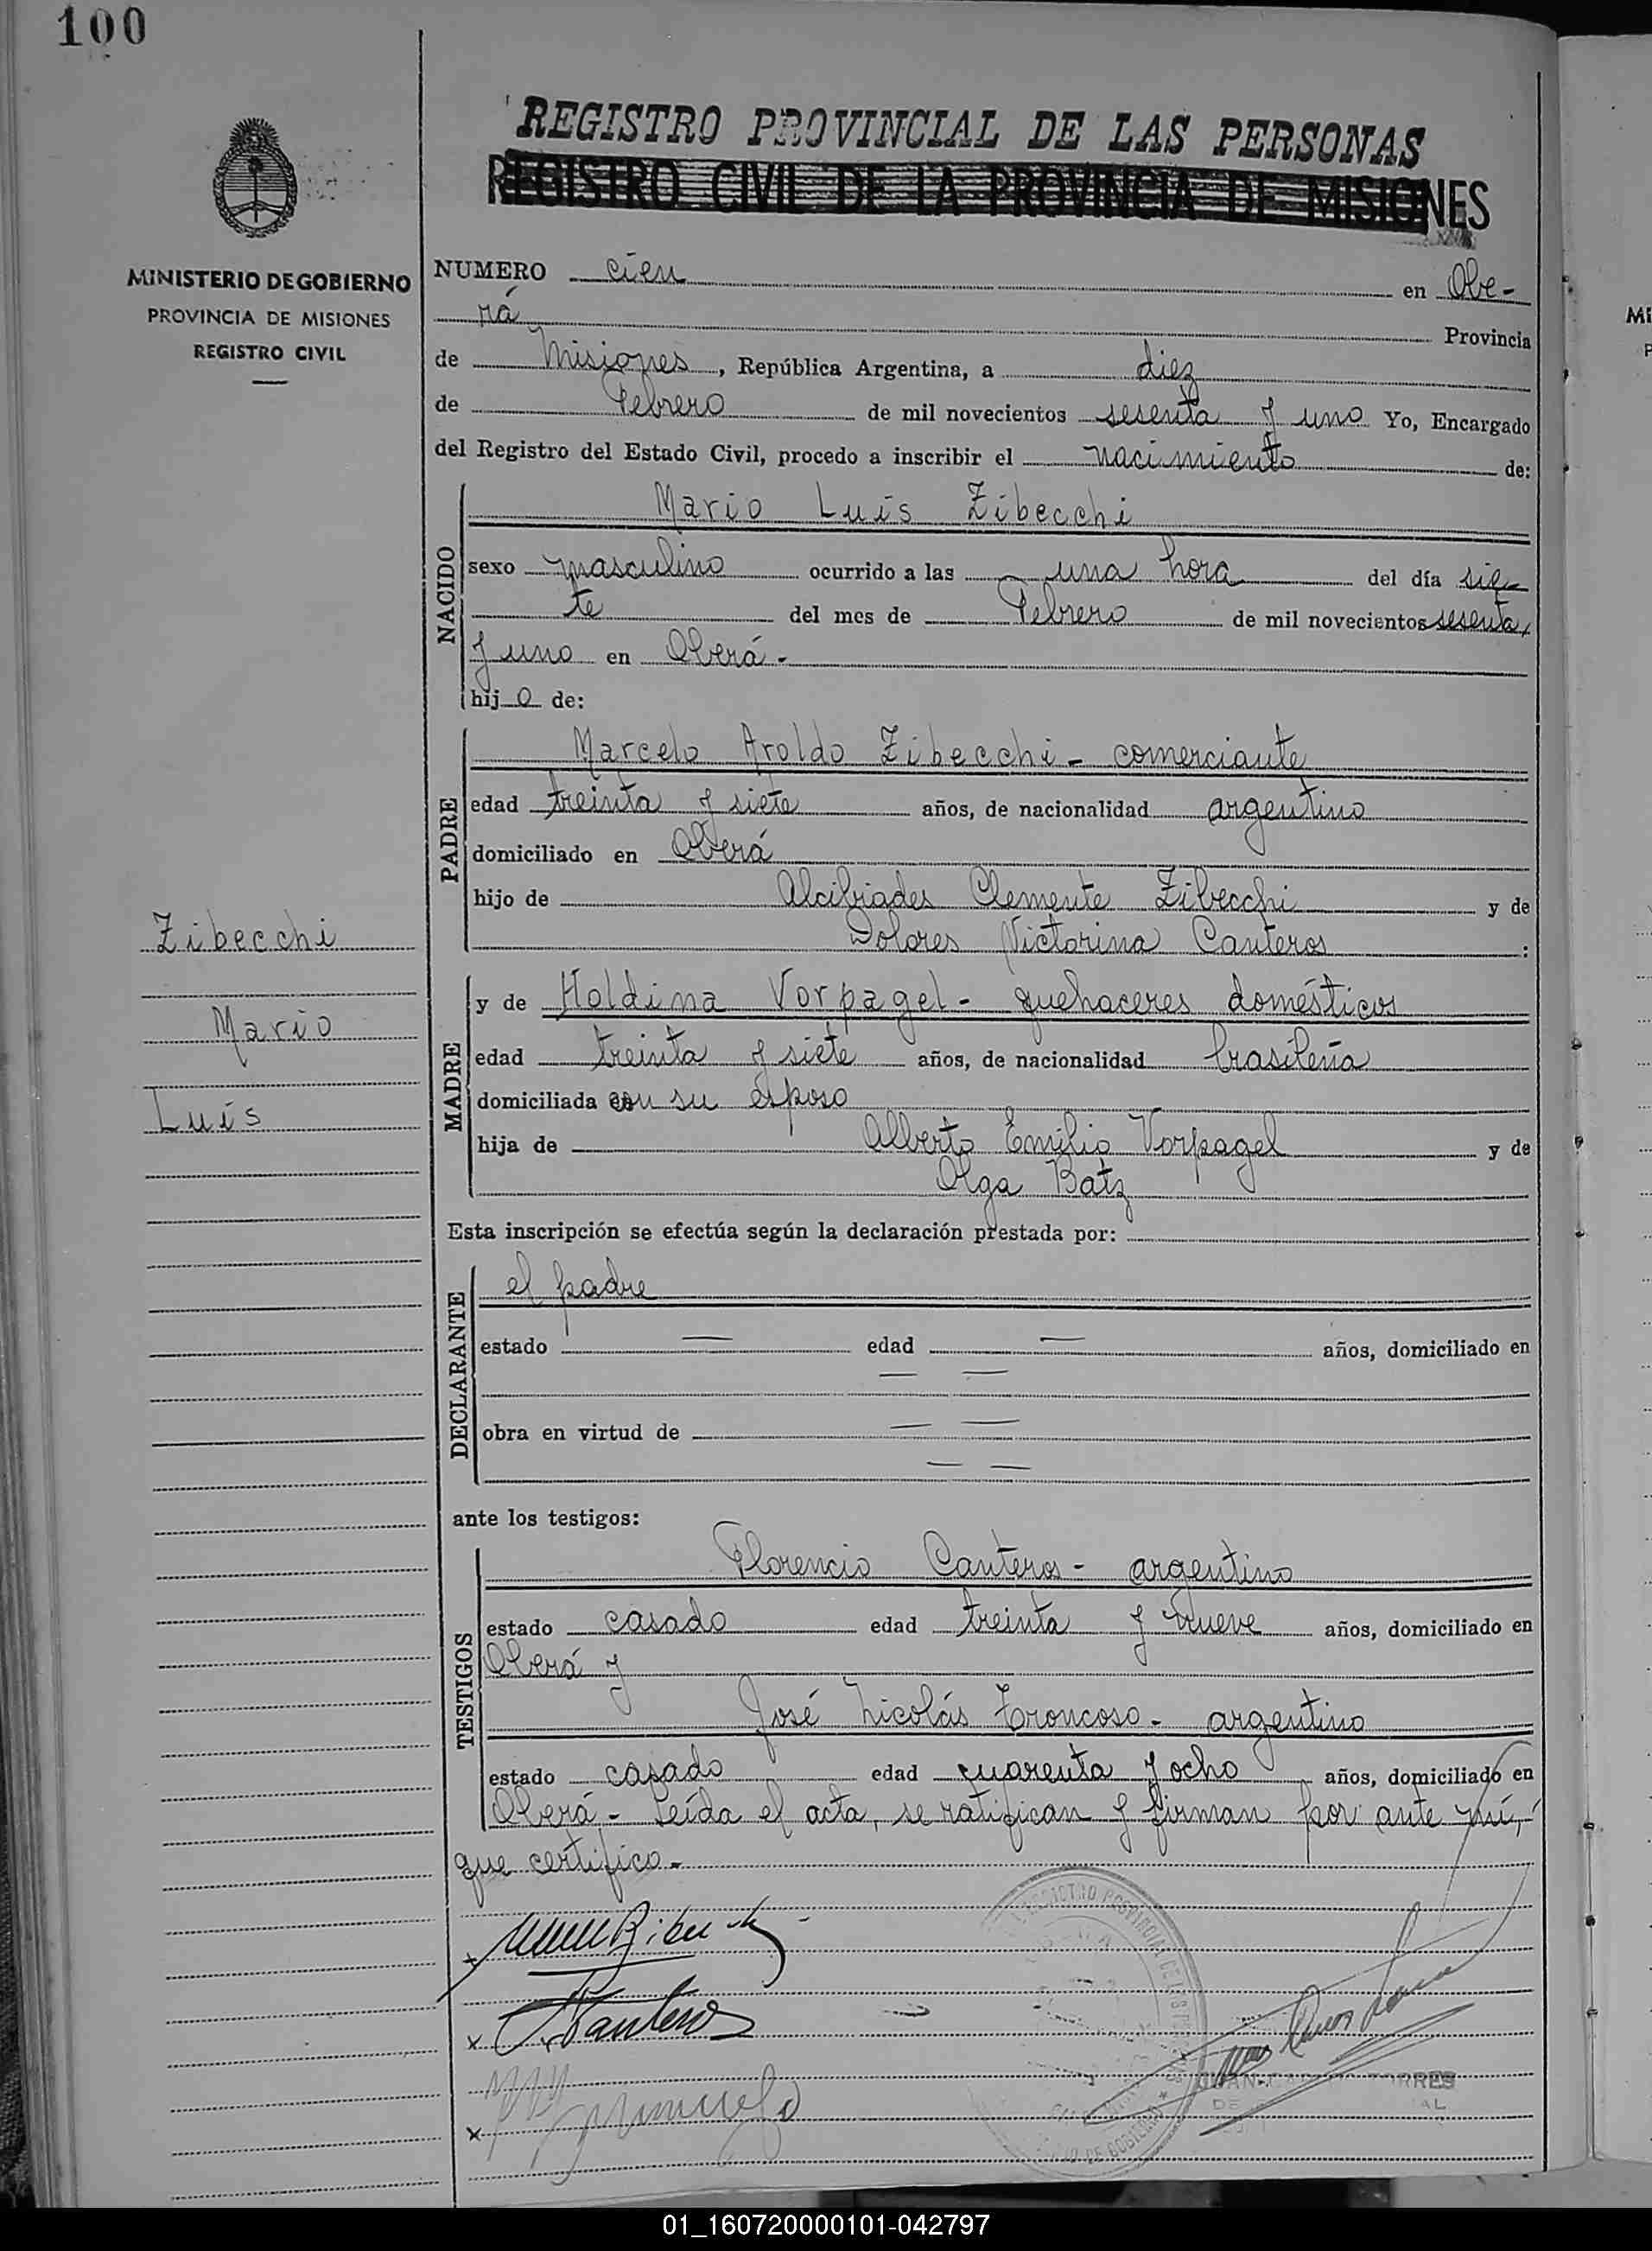 100
REGISTRO PROVINCIAL DE LAS PERSONAS
REGISTRO CIVIL DE LA PROVINCIA DE MISIONES
MINISTERIO DE GOBIERNO
PROVINCIA DE MISIONES
REGISTRO CIVIL
NUMERO cien en Obe-
rá Provincia
de Misiones, República Argentina, a diez
de Febrero de mil novecientos sesenta y uno Yo, Encargado
del Registro del Estado Civil, procedo a inscribir el nacimiento de:
NACIDO
Mario Luis Zibecchi
sexo masculino ocurrido a las una hora del día sie
te del mes de Febrero de mil novecientos sesenta
y uno en Oberá.-
hijo de:
PADRE
Marcelo Aroldo Zibecchi - comerciante
edad treinta y siete años, de nacionalidad argentino
domiciliado en Oberá
hijo de Alcibiades Clemente Zibecchi y de
Dolores Victorina Canteros :
Zibecchi
Mario
Luis
MADRE
y de Holdina Vorpagel - quehaceres domésticos
edad treinta y siete años, de nacionalidad brasileña
domiciliada con su esposo
hija de Alberto Emilio Vorpagel y de
Olga Batz
Esta inscripción se efectúa según la declaración prestada por:
DECLARANTE
el padre
estado — edad — años, domiciliado en
— —
obra en virtud de — —
— —
ante los testigos:
TESTIGOS
Florencio Canteros - argentino
estado casado edad treinta y nueve años, domiciliado en
Oberá y
José Nicolás Troncoso - argentino
estado casado edad cuarenta y ocho años, domiciliado en
Oberá - Leída el acta, se ratifican y firman por ante mí,
que certifico.-
x
x Canteros
x
TORRES
01_160720000101-042797